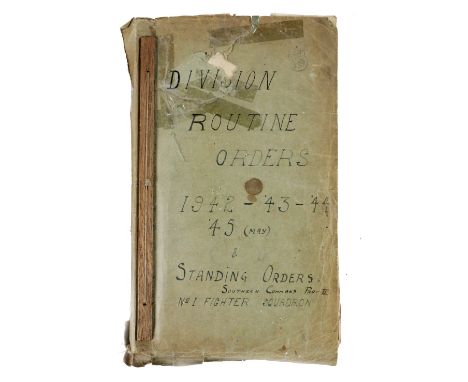 DIVISION
ROUTINE
ORDERS
1942 - '43 - '44
'45 (MAY)
&
STANDING ORDERS.
SOUTHERN COMMAND PART II
No 1 FIGHTER SQURDRON